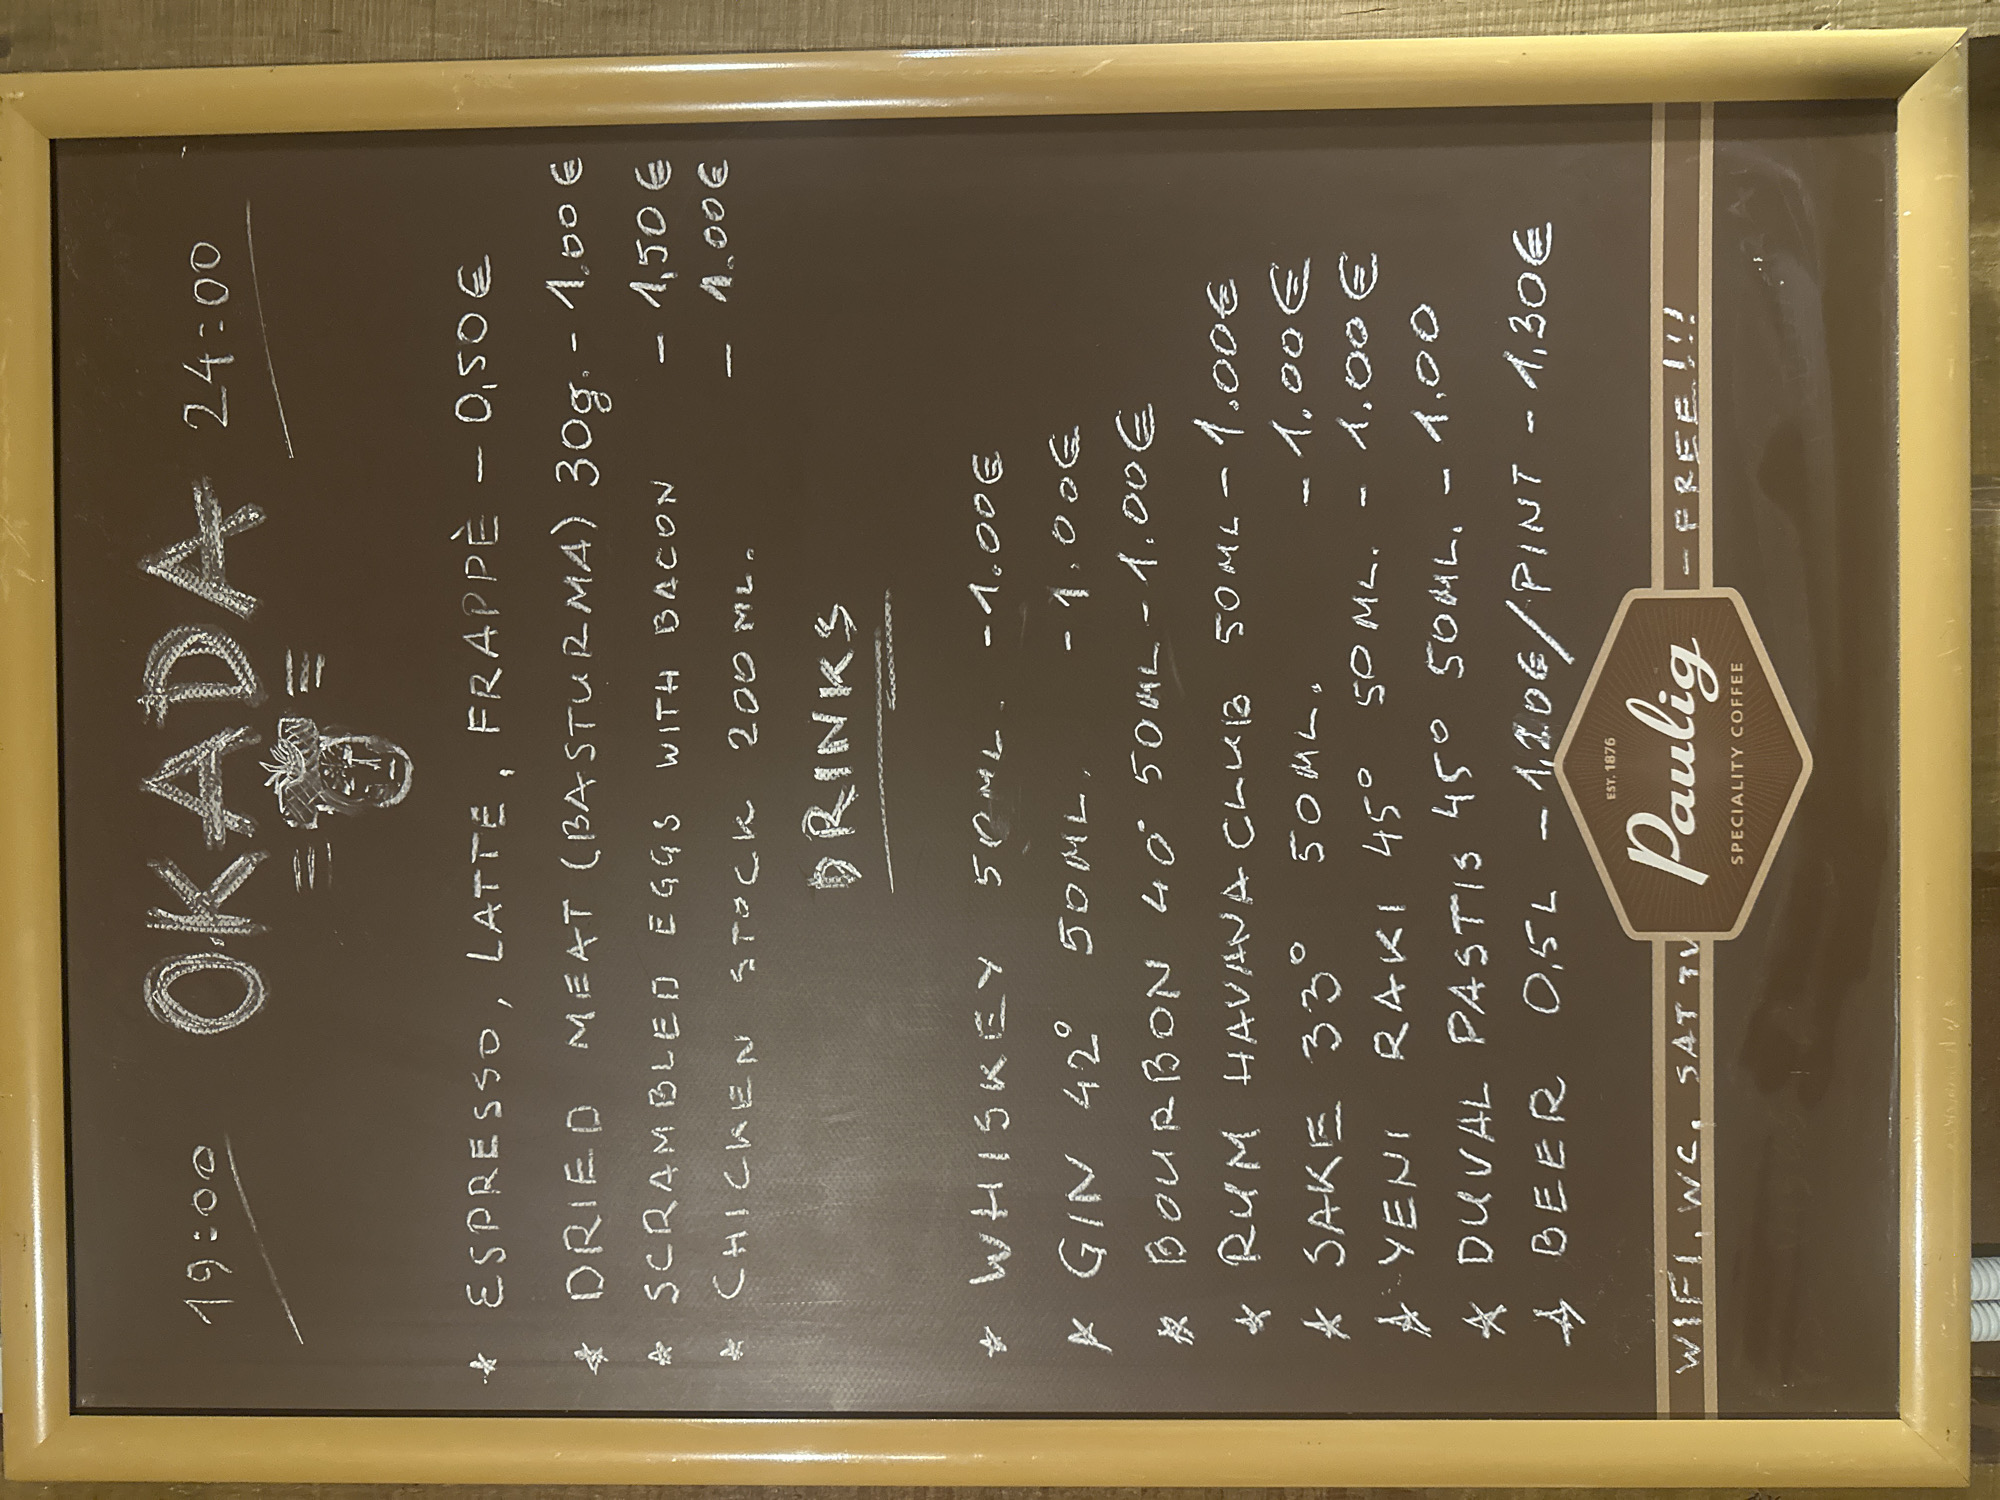 19:00 OKADA 24:00
* ESPRESSO, LATTE, FRAPPÈ - 0,50€
* DRIED MEAT (BASTURMA) 30g. - 1.00€
* SCRAMBLED EGGS WITH BACON - 1,50€
* CHICKEN STOCK 200ML. - 1.00€
DRINKS
* WHISKEY 50ML. - 1.00€
* GIN 42° 50ML. - 1.00€
* BOURBON 40° 50ML - 1.00€
* RUM HAVANA CLUB 50ML - 1.00€
* SAKE 33° 50ML. - 1.00€
* YENI RAKI 45° 50ML. - 1.00€
* DUVAL PASTIS 45° 50ML. - 1.00
* BEER 0,5L - /PINT - 1,30€
WIFI, WC, SAT TV - FREE!!!
EST. 1876
Paulig
SPECIALITY COFFEE